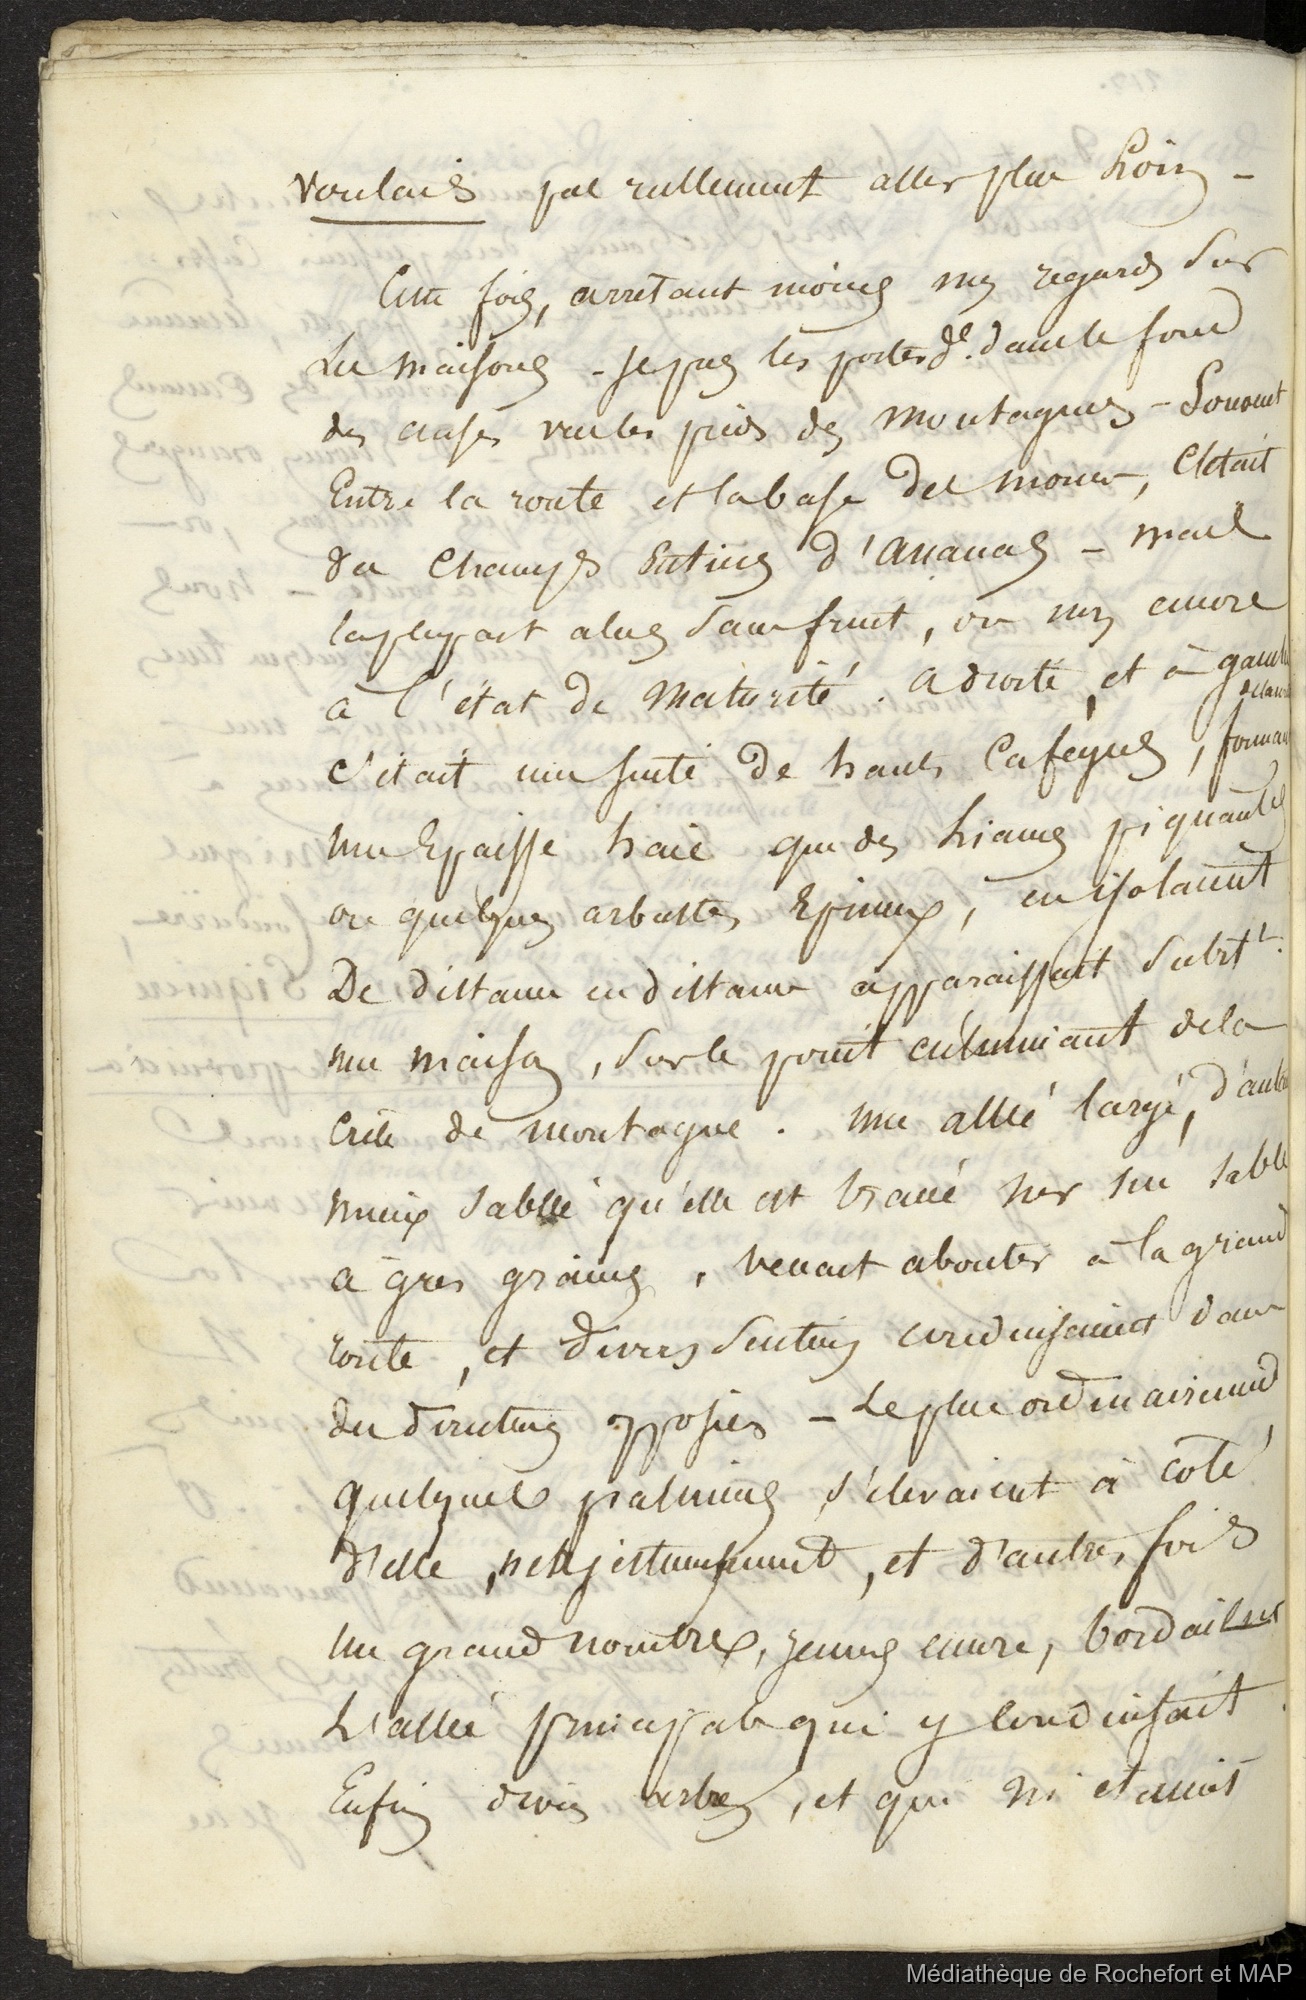 voulais pas réellement aller plus Loin -
Cette fois, arretant moins mes regards sur
Les maisons - je pus les porter de dans le fond
des vers les pieds des montagnes - Souvent
Entre la route et la base des mornes, C'était
des Champs Entiers d'ananas - mais
la plupart alors sans fruit, ou non encore
à l'état de Maturité. a droite, et à gauche
c'était une suite de hauts Caféyers, formant
une Epaisse haie que des Lianes piquantes
ou quelques arbustes Epineux, en isolaient
De distance en distance apparaissait Subt.t
une maison, sur le point culminant de la
Crête de montagne. une allée large, d'autant
mieux sablée qu'elle est tracée sur un sable
à gros grains, venait abouter à la grand
route, et divers Sentiers conduisaient dans
des directions opposées - Le plus ordinairement
quelques palmiers s'élevaient à coté
d'elle, et d'autres fois
un grand nombre, jeunes encore, bordaient
L'allée principale qui y conduisait.
Enfin divers arbres, et qui m'étaient
Médiathèque de Rochefort et MAP